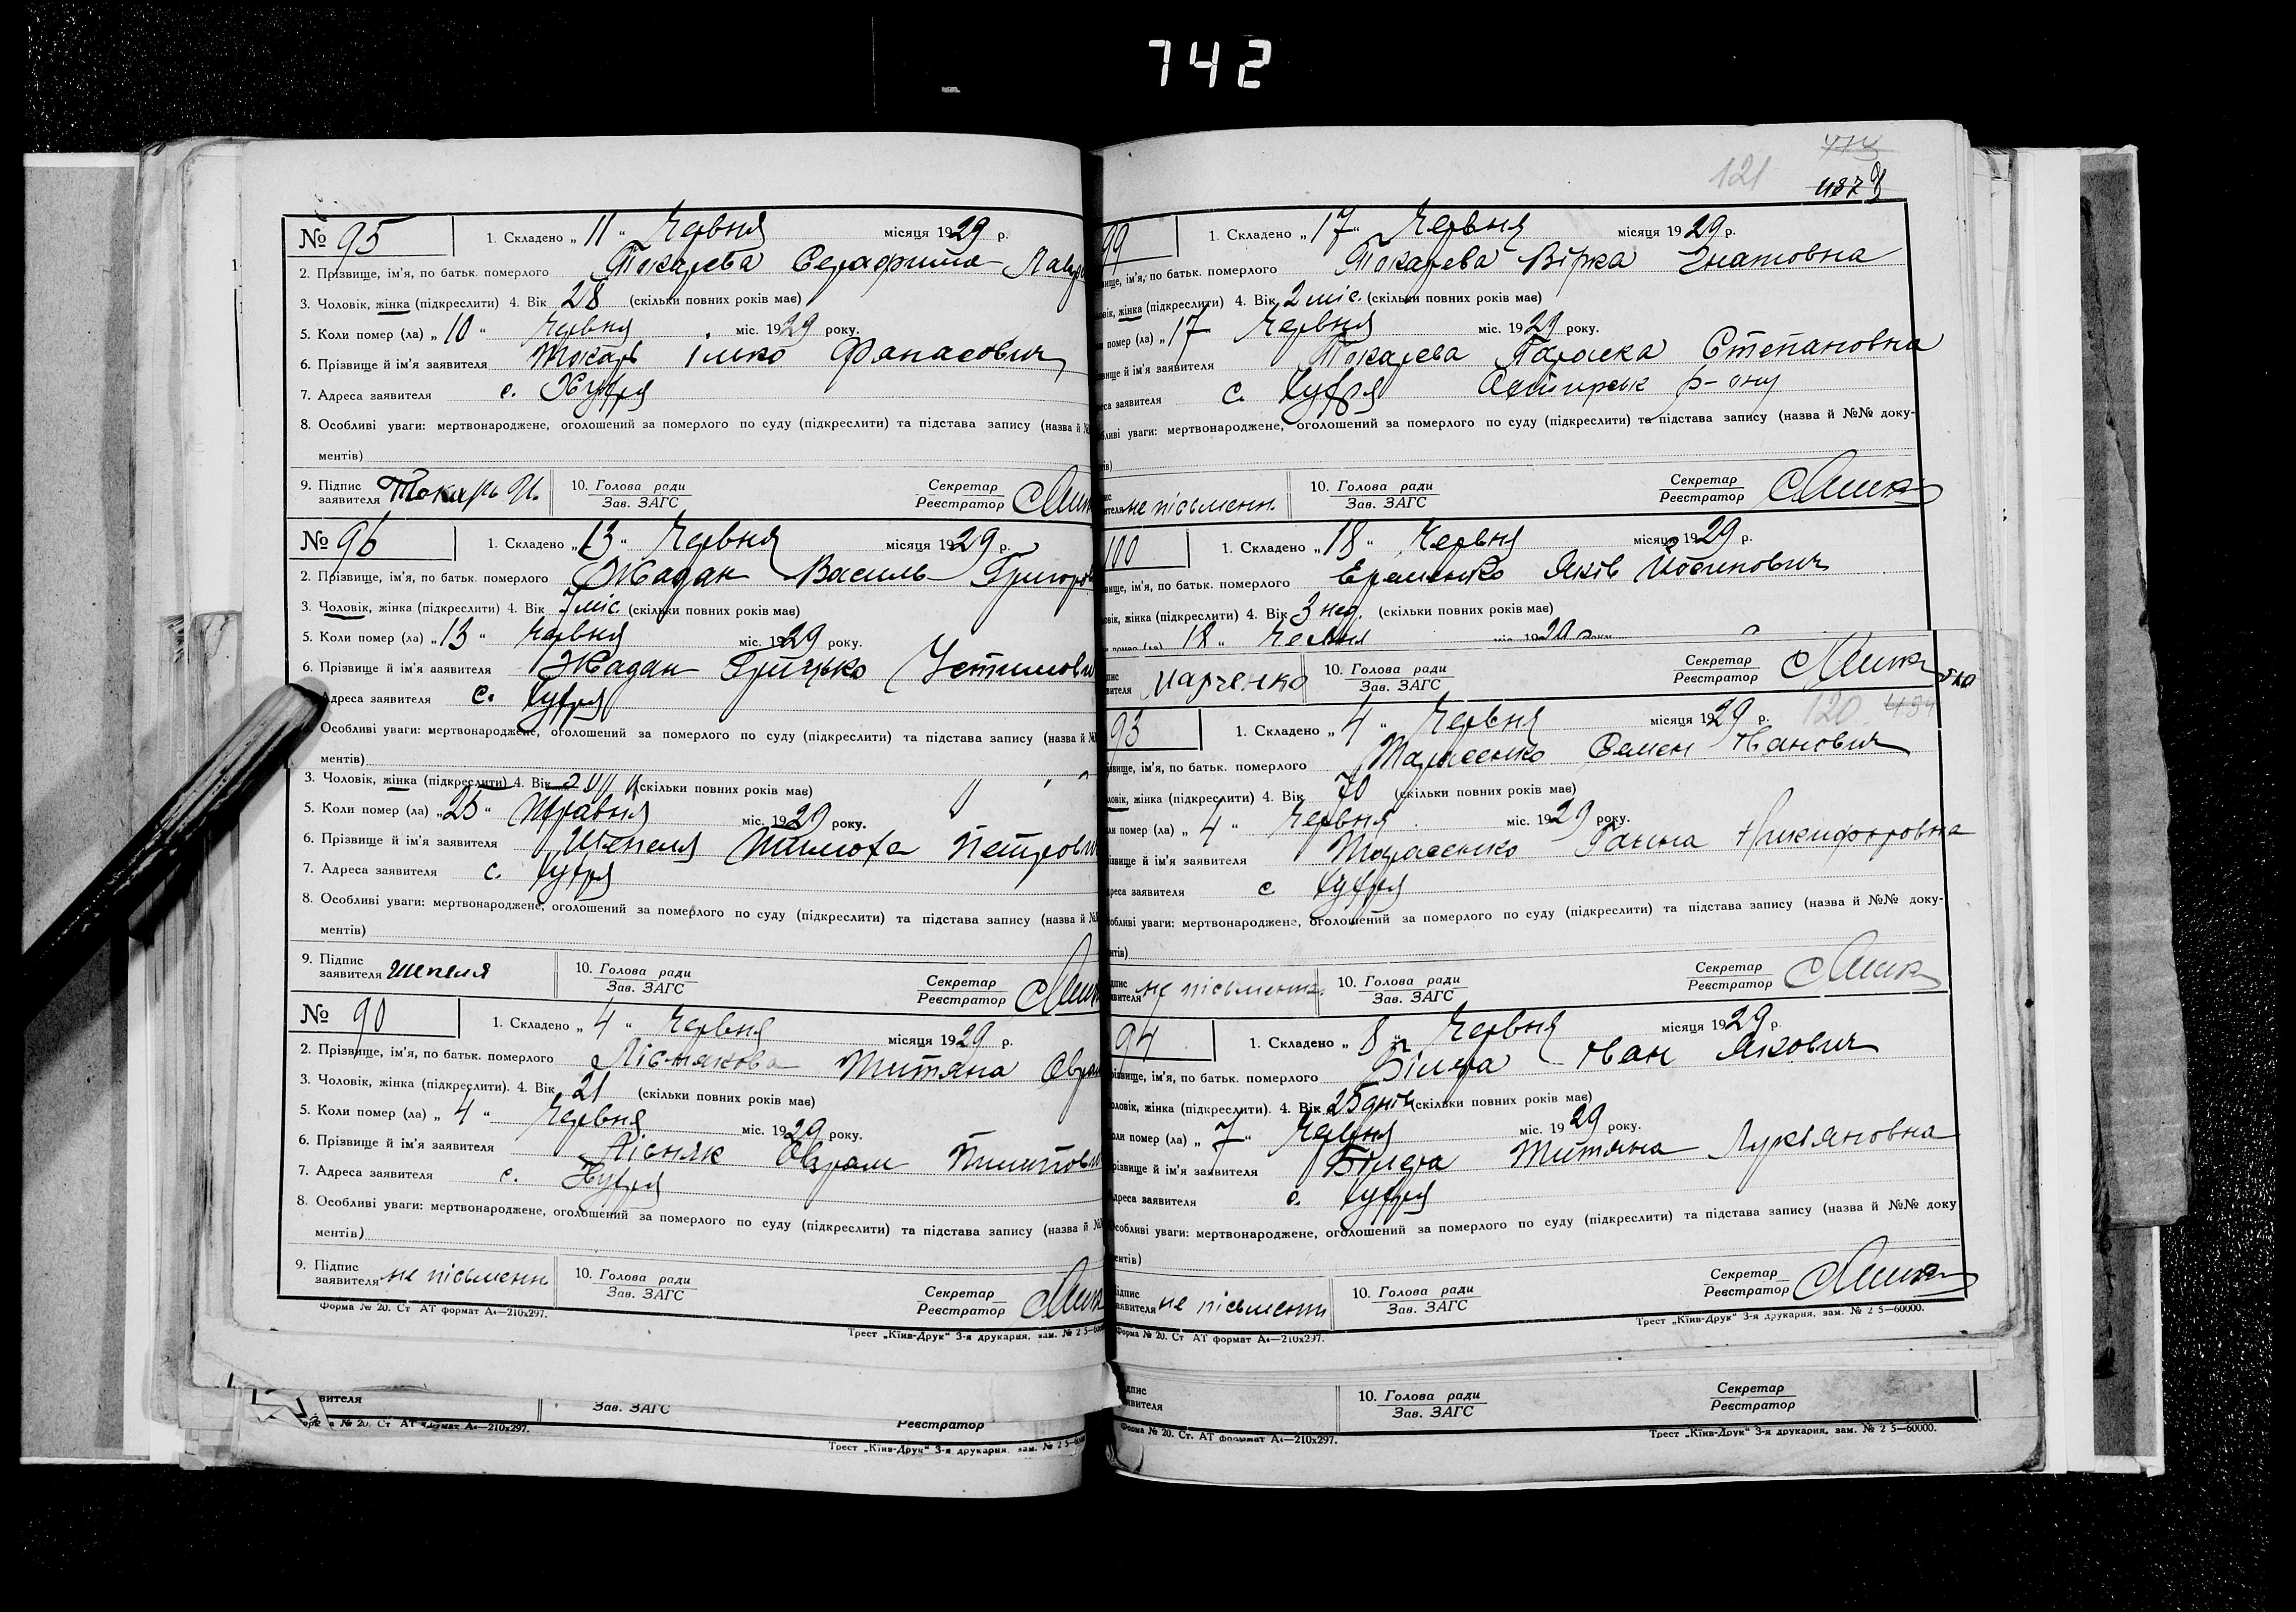 742
121
№ 95
1. Складено „ 11 " Червня місяця 1929 р.
2. Прізвище, ім'я, по батьк. померлого Токарева Серафима
3. Чоловік, жінка (підкреслити) 4. Вік 28 (скільки повних років має)
5. Коли помер (ла) „ 10 " Червня міс. 1929 року.
6. Прізвище й ім'я заявителя Токарь Ілько Фанасович
7. Адреса заявителя с. Хухря
8. Особливі уваги: мертвонароджене, оголошений за померлого по суду (підкреслити) та підстава запису (назва й
ментів)
9. Підпис заявителя Токарь И. 10. Голова ради Зав. ЗАГС Секретар Реєстратор
№ 96
1. Складено „ 13 " Червня місяця 1929 р.
2. Прізвище, ім'я, по батьк. померлого Жадан Василь Григоро
3. Чоловік, жінка (підкреслити) 4. Вік 7 міс. (скільки повних років має)
5. Коли помер (ла) „ 13 " Червня міс. 1929 року.
6. Прізвище й ім'я заявителя Жадан Грицько Устимови
Адреса заявителя с. Хухря
Особливі уваги: мертвонароджене, оголошений за померлого по суду (підкреслити) та підстава запису (назва й
ментів)
3. Чоловік, жінка (підкреслити) 4. Вік (скільки повних років має)
5. Коли помер (ла) „ 25 " Травня міс. 1929 року.
6. Прізвище й ім'я заявителя Шепеля Тимоха Петрови
7. Адреса заявителя с. Хухря
8. Особливі уваги: мертвонароджене, оголошений за померлого по суду (підкреслити) та підстава запису (назва й
ментів)
9. Підпис заявителя Шепеля 10. Голова ради Зав. ЗАГС Секретар Реєстратор
№ 90
1. Складено „ 4 " Червня місяця 1929 р.
2. Прізвище, ім'я, по батьк. померлогоЛіснякова Титяна Овра
3. Чоловік, жінка (підкреслити). 4. Вік 21 (скільки повних років має)
5. Коли помер (ла) „ 4 " Червня міс. 1929 року.
6. Прізвище й ім'я заявителя Лісняк Оврам Пилипови
7. Адреса заявителя с. Хухря
8. Особливі уваги: мертвонароджене, оголошений за померлого по суду (підкреслити) та підстава запису (назва й
ментів)
9. Підпис заявителя не пісьменн 10. Голова ради Зав. ЗАГС Секретар Реєстратор
Форма № 20. Ст АТ формат А4—210х297.
Трест „Київ-Друк" 3-я друкария, зам. № 2 5—
вителя
Зав. ЗАГС
Реєстратор
№ 20. Ст АТ формат А4—210х297.
Трест „Київ-Друк" 3-я друкария, зам. № 2 5—
99
1. Складено „ 17 " Червня місяця 1929 р.
ім'я, по батьк. померлого Токарева Вірка Гнатовна
жінка (підкреслити) 4. Вік 2 міс. (скільки повних років має)
помер (ла) „ 17 Червня міс. 1929 року.
й ім'я заявителя Токарева Параска Степановна
заявителя с. Хухря Охтирськ р-ону
уваги: мертвонароджене, оголошений за померлого по суду (підкреслити) та підстава запису (назва й №№ доку-
не пісьменн. 10. Голова ради Зав. ЗАГС Секретар Реєстратор
100
1. Складено „ 18 " Червня місяця 1929 р.
ім'я, по батьк. померлого Еременко Яків
жінка (підкреслити) 4. Вік 3 нед. (скільки повних років має)
18 " Червня
Марченко 10. Голова ради Зав. ЗАГС Секретар Реєстратор
120
93
1. Складено „ 4 " Червня місяця 1929 р.
ім'я, по батьк. померлого Тарасенко Семен Іванович
жінка (підкреслити) 4. Вік 70 (скільки повних років має)
помер (ла) „ 4 " Червня міс. 1929 року.
й ім'я заявителя Тарасенко Ганна Никифоровна
заявителя с Хухря
уваги: мертвонароджене, оголошений за померлого по суду (підкреслити) та підстава запису (назва й №№ доку-
не пісьменн. 10. Голова ради Зав. ЗАГС Секретар Реєстратор
94
1. Складено „ 8 " Червня місяця 1929 р.
ім'я, по батьк. померлого Біндра Іван Якович
жінка (підкреслити). 4. Вік 25 днів (скільки повних років має)
помер (ла) „ 7 " Червня міс. 1929 року.
й ім'я заявителя Біндра Титяна Лукіяновна
заявителя с. Хухря
уваги: мертвонароджене, оголошений за померлого по суду (підкреслити) та підстава запису (назва й №№ доку
не пісьменн 10. Голова ради Зав. ЗАГС Секретар Реєстратор
Форма № 20. Ст АТ формат А4—210х297.
Трест „Київ-Друк" 3-я друкария, зам. № 2 5—60000.
10. Голова ради Зав. ЗАГС Секретар Реєстратор
Форма № 20. Ст. АТ формат А4—210х297.
Трест „Київ-Друк" 3-я друкария, зам. № 2 5—60000.